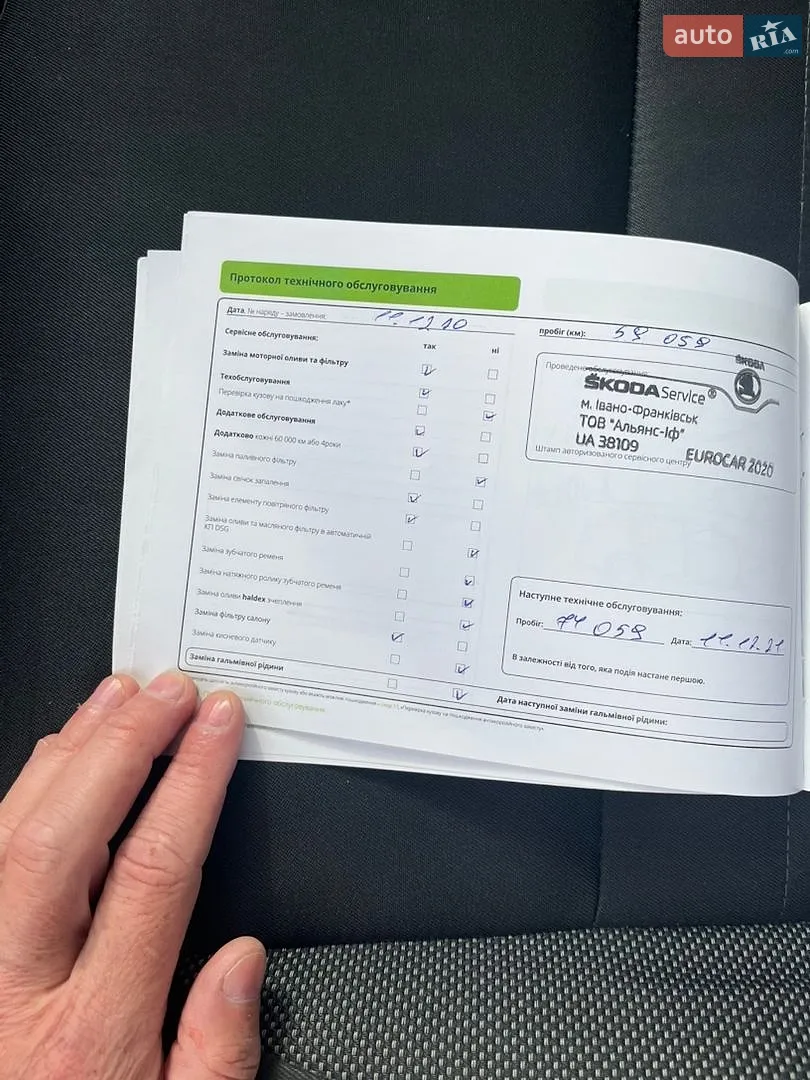 auto RIA.com
Протокол технічного обслуговування
Дата. № наряду – замовлення: 11.12.20
пробіг (км): 59 059
Сервісне обслуговування:
так ні
Заміна моторної оливи та фільтру
Техобслуговування
Перевірка кузову на пошкодження лаку*
Додаткове обслуговування
Додатково кожні 60 000 км або 4роки
Заміна паливного фільтру
Заміна свічок запалення
Заміна елементу повітряного фільтру
Заміна оливи та масляного фільтру в автоматичній
КП DSG
Заміна зубчатого ременя
Заміна натяжного ролику зубчатого ременя
Заміна оливи haldex зчеплення
Заміна фільтру салону
Заміна кисневого датчику
Заміна гальмівної рідини
Проведено обслуговування:
ŠKODA
ŠKODA Service®
м. Івано-Франківськ
ТОВ "Альянс-Іф"
UA 38109
EUROCAR 2020
Штамп авторизованого сервісного центру
Наступне технічне обслуговування:
Пробіг: 74 059 Дата: 11.12.21
В залежності від того, яка подія настане першою.
Дата наступної заміни гальмівної рідини: